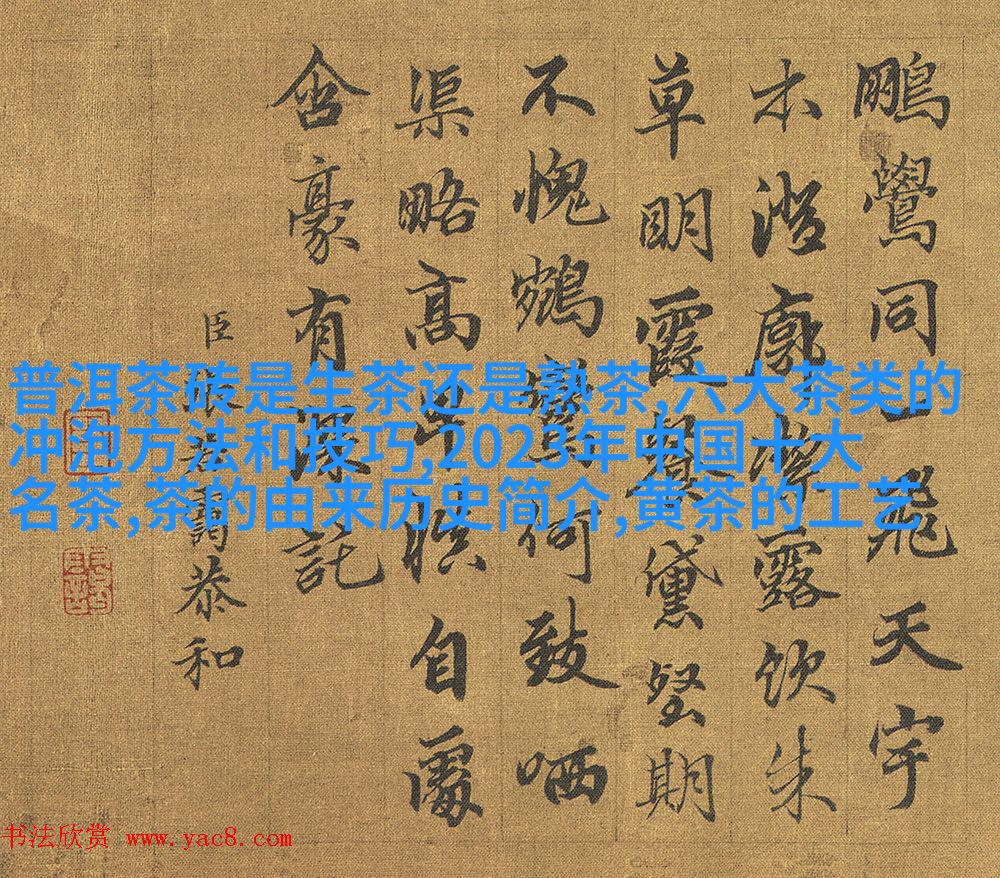 鵬鷽同一飛天宇
木澄廓露饮朱
草明霞黛堅期
不愧鵷鸞何致哂
渠略高自屬
含豪有深託
臣張若靄恭和
普洱茶砖是生茶还是熟茶,六大茶类的
冲泡方法和技巧,2023年中国十大
名茶,茶的由来历史简介,黄茶的工艺
书法欣赏 www.yac8.com